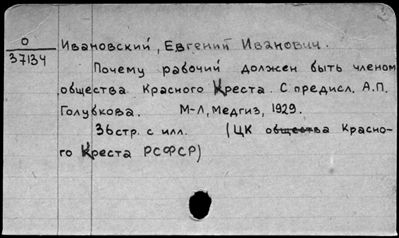 О
37134
Ивановский, Евгений Иванович.
Почему рабочий должен быть членом
общества Красного Креста. С предисл. А.П.
Голубкова. М-Л, Медгиз, 1929.
36стр. с илл. (ЦК общества Красно-
го Креста РСФСР)